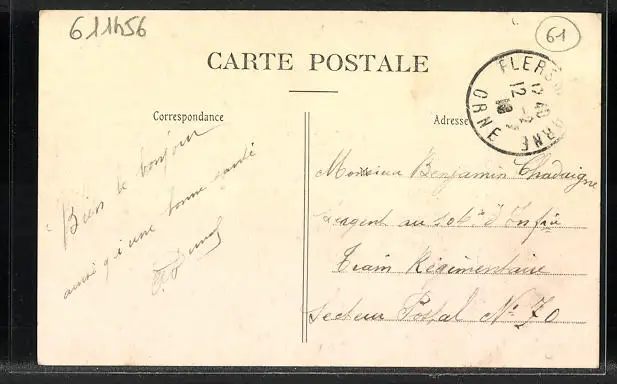 611h56
61
CARTE POSTALE
FLERS ORNE
12 40
12 -2
ORNE
Correspondance
Adresse
Bien le bonjour
ainsi qu'une bonne santé
Monsieur Benjamin Chadaigne
Sergent au d'Infie
Train Régimentaire
Secteur Postal No 70